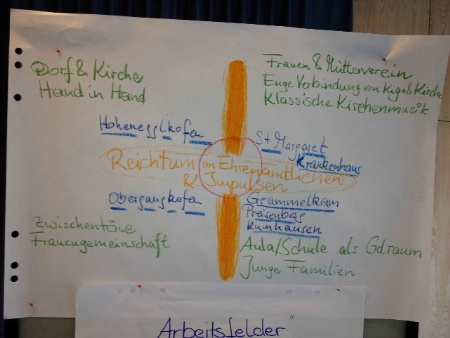 Dorf & Kirche
Hand in Hand
Frauen & Mütterverein
Enge Verbindung von Kiga & Kirche
Klassische Kirchenmusik
Hohenegglkofen
St. Margaret
Krankenhaus
Reichtum an Ehrenamtlichen
& Impulsen
Obergangkofen
Grammelkam
Preisenberg
Kumhausen
Zwischentöne
Frauengemeinschaft
Aula/Schule als Gd.raum
Junge Familien
Arbeitsfelder"